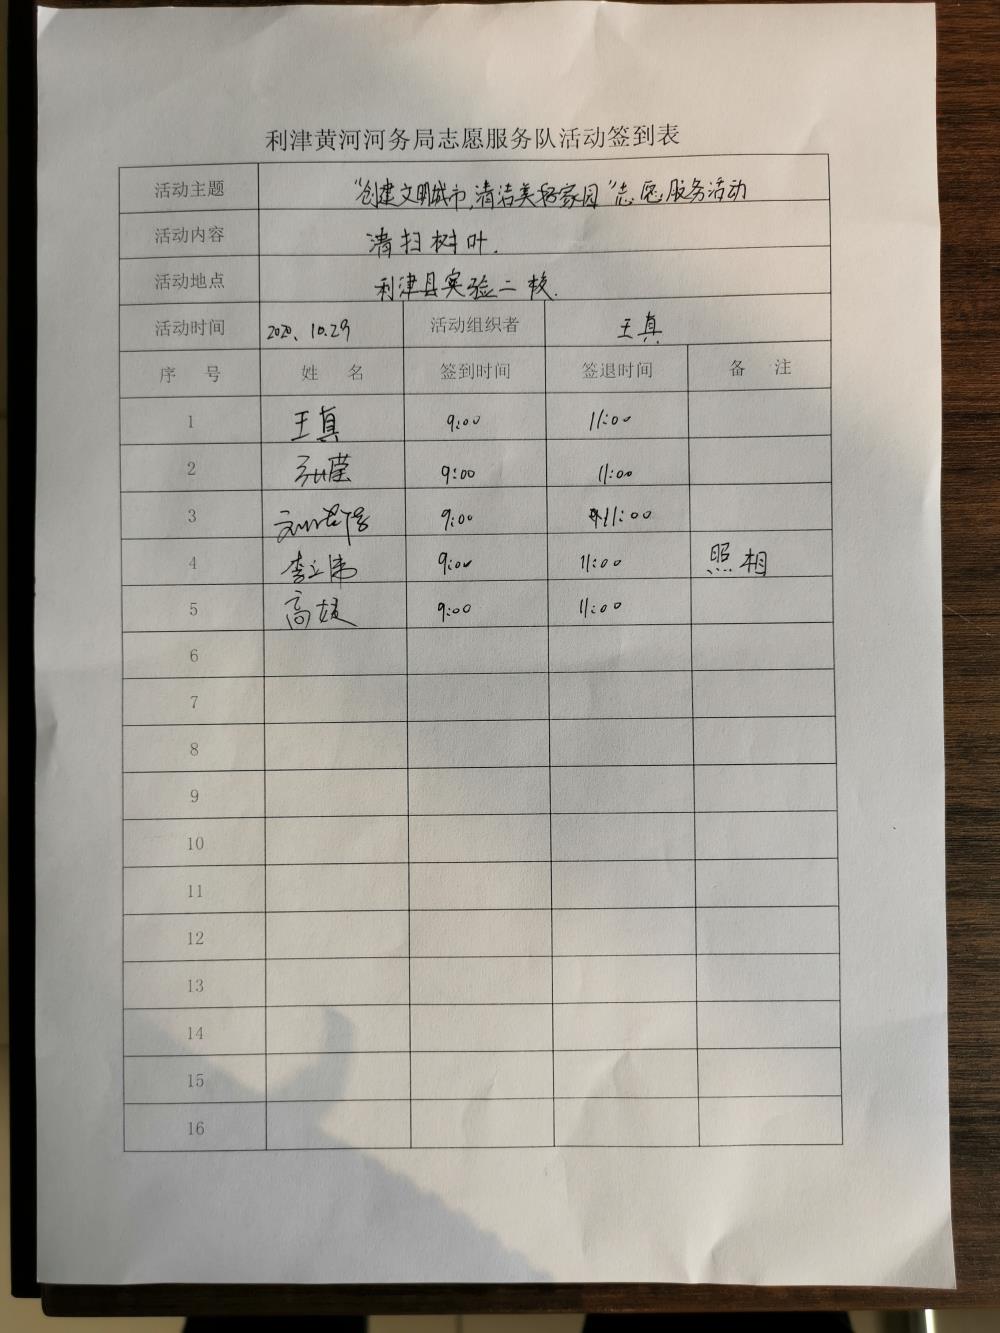 利津黄河河务局志愿服务队活动签到表
活动主题 "创建文明城市,清洁美好家园"志愿服务活动
活动内容 清扫树叶.
活动地点 利津县实验二校.
活动时间 2020、10.29 活动组织者 王真
序 号 姓 名 签到时间 签退时间 备 注
1 王真 9:00 11:00
2 9:00 11:00
3 9:00 11:00
4 李立伟 9:00 11:00 照相
5 高媛 9:00 11:00
6
7
8
9
10
11
12
13
14
15
16